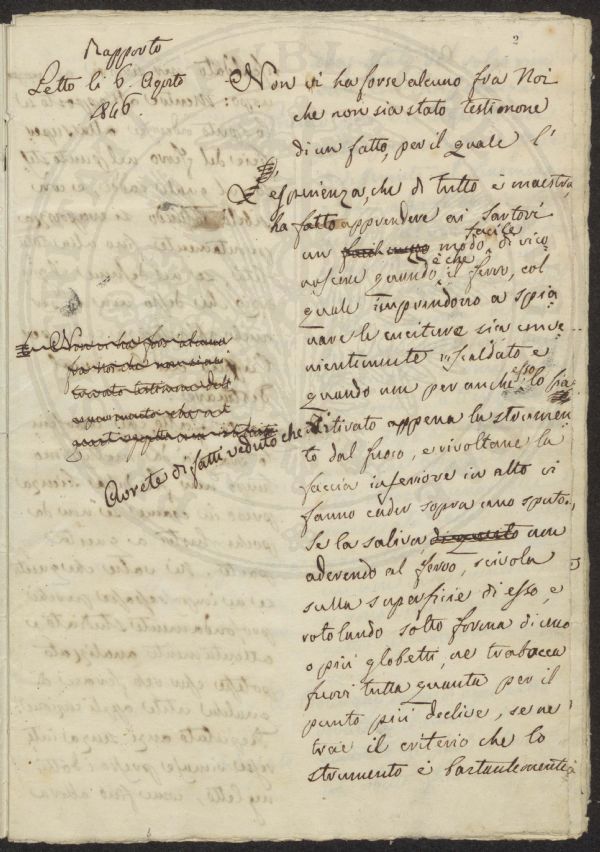 2
Rapporto
Letto li 6. Agosto
1846.
Non vi ha forse alcuno fra Noi
che non sia stato testimone
di un fatto, per il quale l'
esperienza, che di tutto è maestra,
ha fatto apprendere ai Sartori
un modo facile di rico
noscere quando, è che il ferro, col
quale imprendono a spia
nare le cuciture sia conve
nientemente riscaldato e
quando non per anche esso lo sia
Non vi ha forse alcuno
fra noi che non sia
stato testimone dell
Avrete di fatti veduto che
ritirato appena lo strumen
to dal fuoco, e rivoltane la
faccia inferiore in alto vi
fanno cader sopra uno sputo,
Se la saliva non
aderendo al ferro, scivola
sulla superficie di esso, e
rotolando sotto forma di uno
o più globetti, ne trabocca
fuori tutta quanta per il
punto più declive, se ne
trae il criterio che lo
strumento è bastantemente